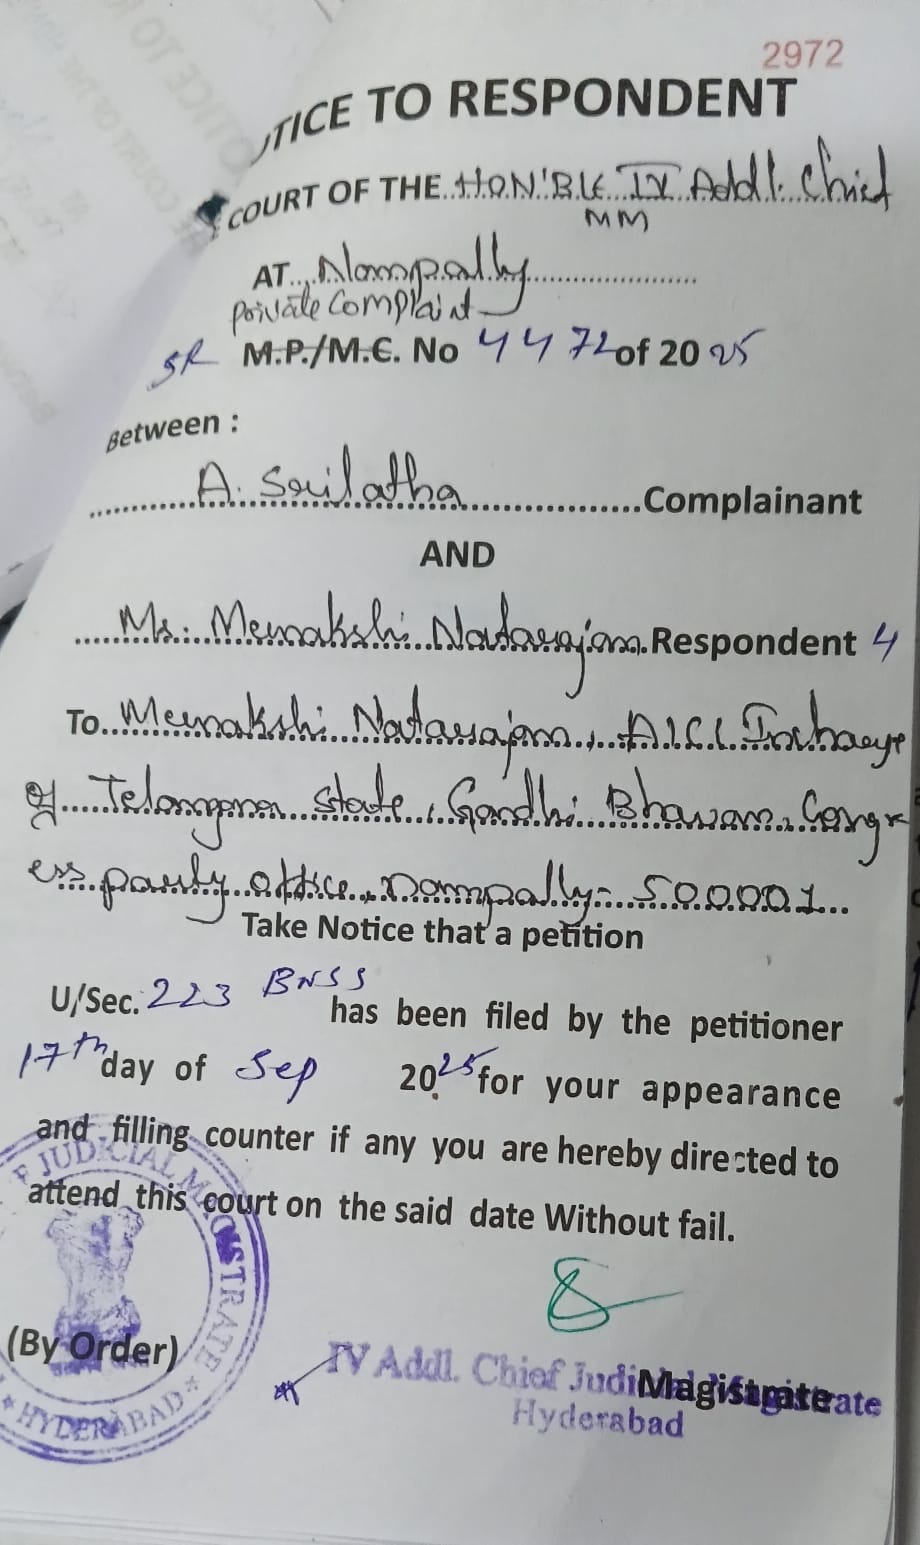 2972
TICE TO RESPONDENT
COURT OF THE HON'BLE IV Addl. Chief
MM
AT Nampally
private Complaint
SR M.P./M.C. No 4472 of 2025
Between :
A. Srilatha Complainant
AND
Ms. Meenakshi Natarajan. Respondent 4
To Meenakshi Natarajan, AICC Incharge
of Telangana State, Gandhi Bhavan, Congr
ess party office, Nampally- 500001
Take Notice that a petition
U/Sec. 223 BNSS has been filed by the petitioner
17th day of Sep 2025 for your appearance
and filling counter if any you are hereby directed to
attend this court on the said date Without fail.
(By Order)
IV Addl. Chief Judicial Magistrate
Magistrate
Hyderabad
F JUDICIAL MAGISTRATE
* HYDERABAD *